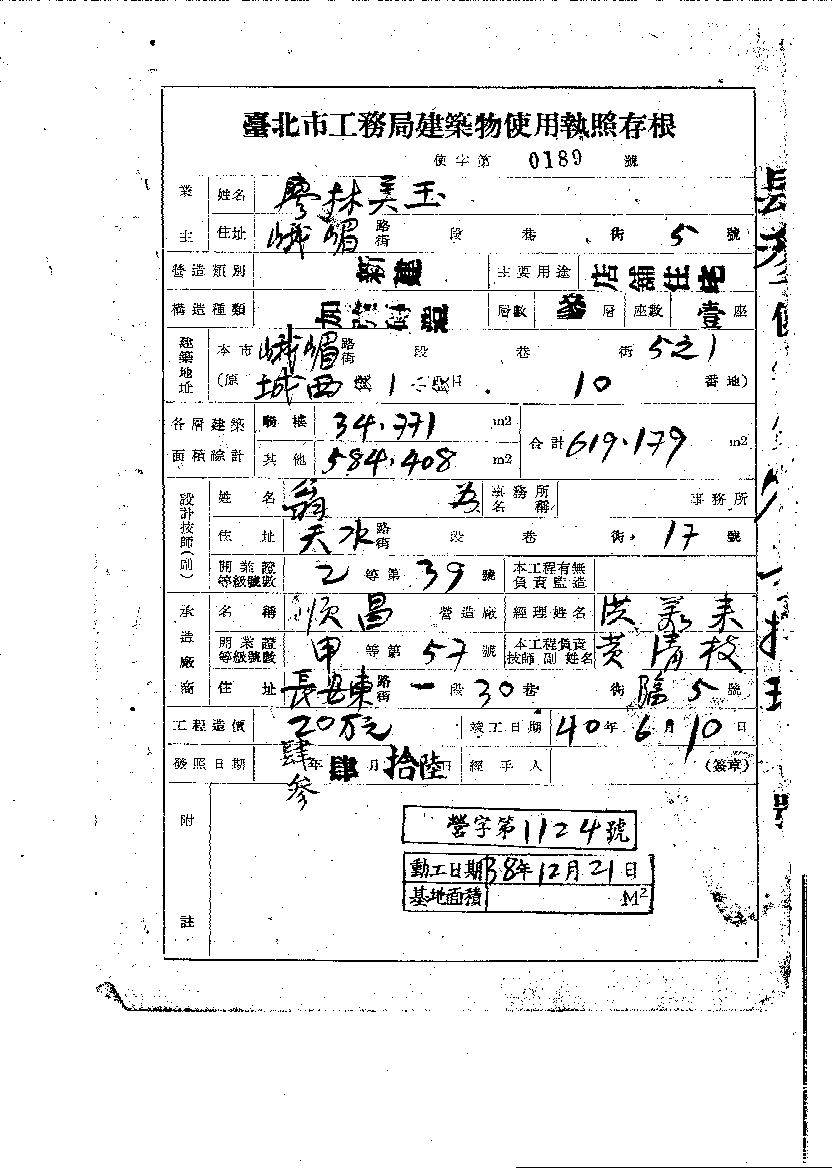 臺北市工務局建築物使用執照存根
使字第 0189 號
業主 姓名 廖林美玉
住址 峨嵋 路街 段 巷 街 5 號
營造類別 新建 主要用途 店舖住宅
構造種類 加強磚造 層數 參 層 座數 壹 座
建築地址 本市 峨嵋 路街 段 巷 街 5之1
(原 城西 段 1 小段 10 番地)
各層建築面積總計 騎樓 34.771 m2 合計 619.179 m2
其他 584.408 m2
設計技師(副) 姓名 翁 為 事務所名稱 事務所
住址 天水 路街 段 巷 街 17 號
開業證等級號數 乙 等第 39 號 本工程有無負責監造
承造廠商 名稱 順昌 營造廠 經理姓名 洪 來
開業證等級號數 甲 等第 57 號 本工程負責技師副姓名 黃清枝
住址 長安東 路街 一 段 30 巷 街 臨5 號
工程造價 20万元 竣工日期 40 年 6 月 10 日
發照日期 肆參 年 肆 月 拾陸 日 經手人 (簽章)
附註
營字第1124號
動工日期 38年12月21日
基地面積 M²